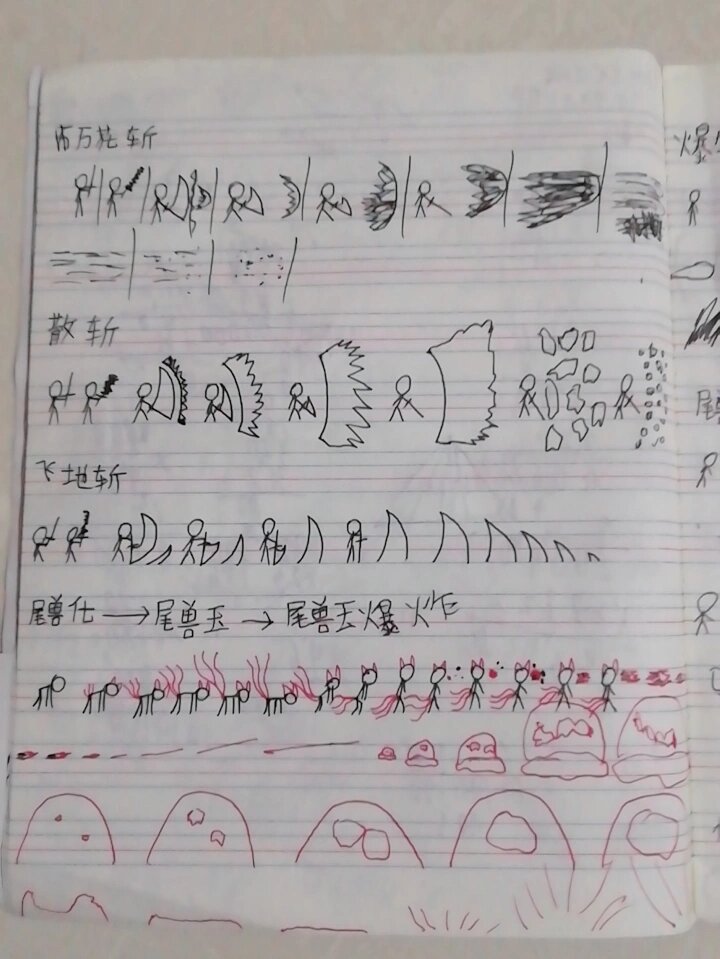 斩
爆
散斩
飞地斩
尾
尾兽化→尾兽玉→尾兽玉爆炸